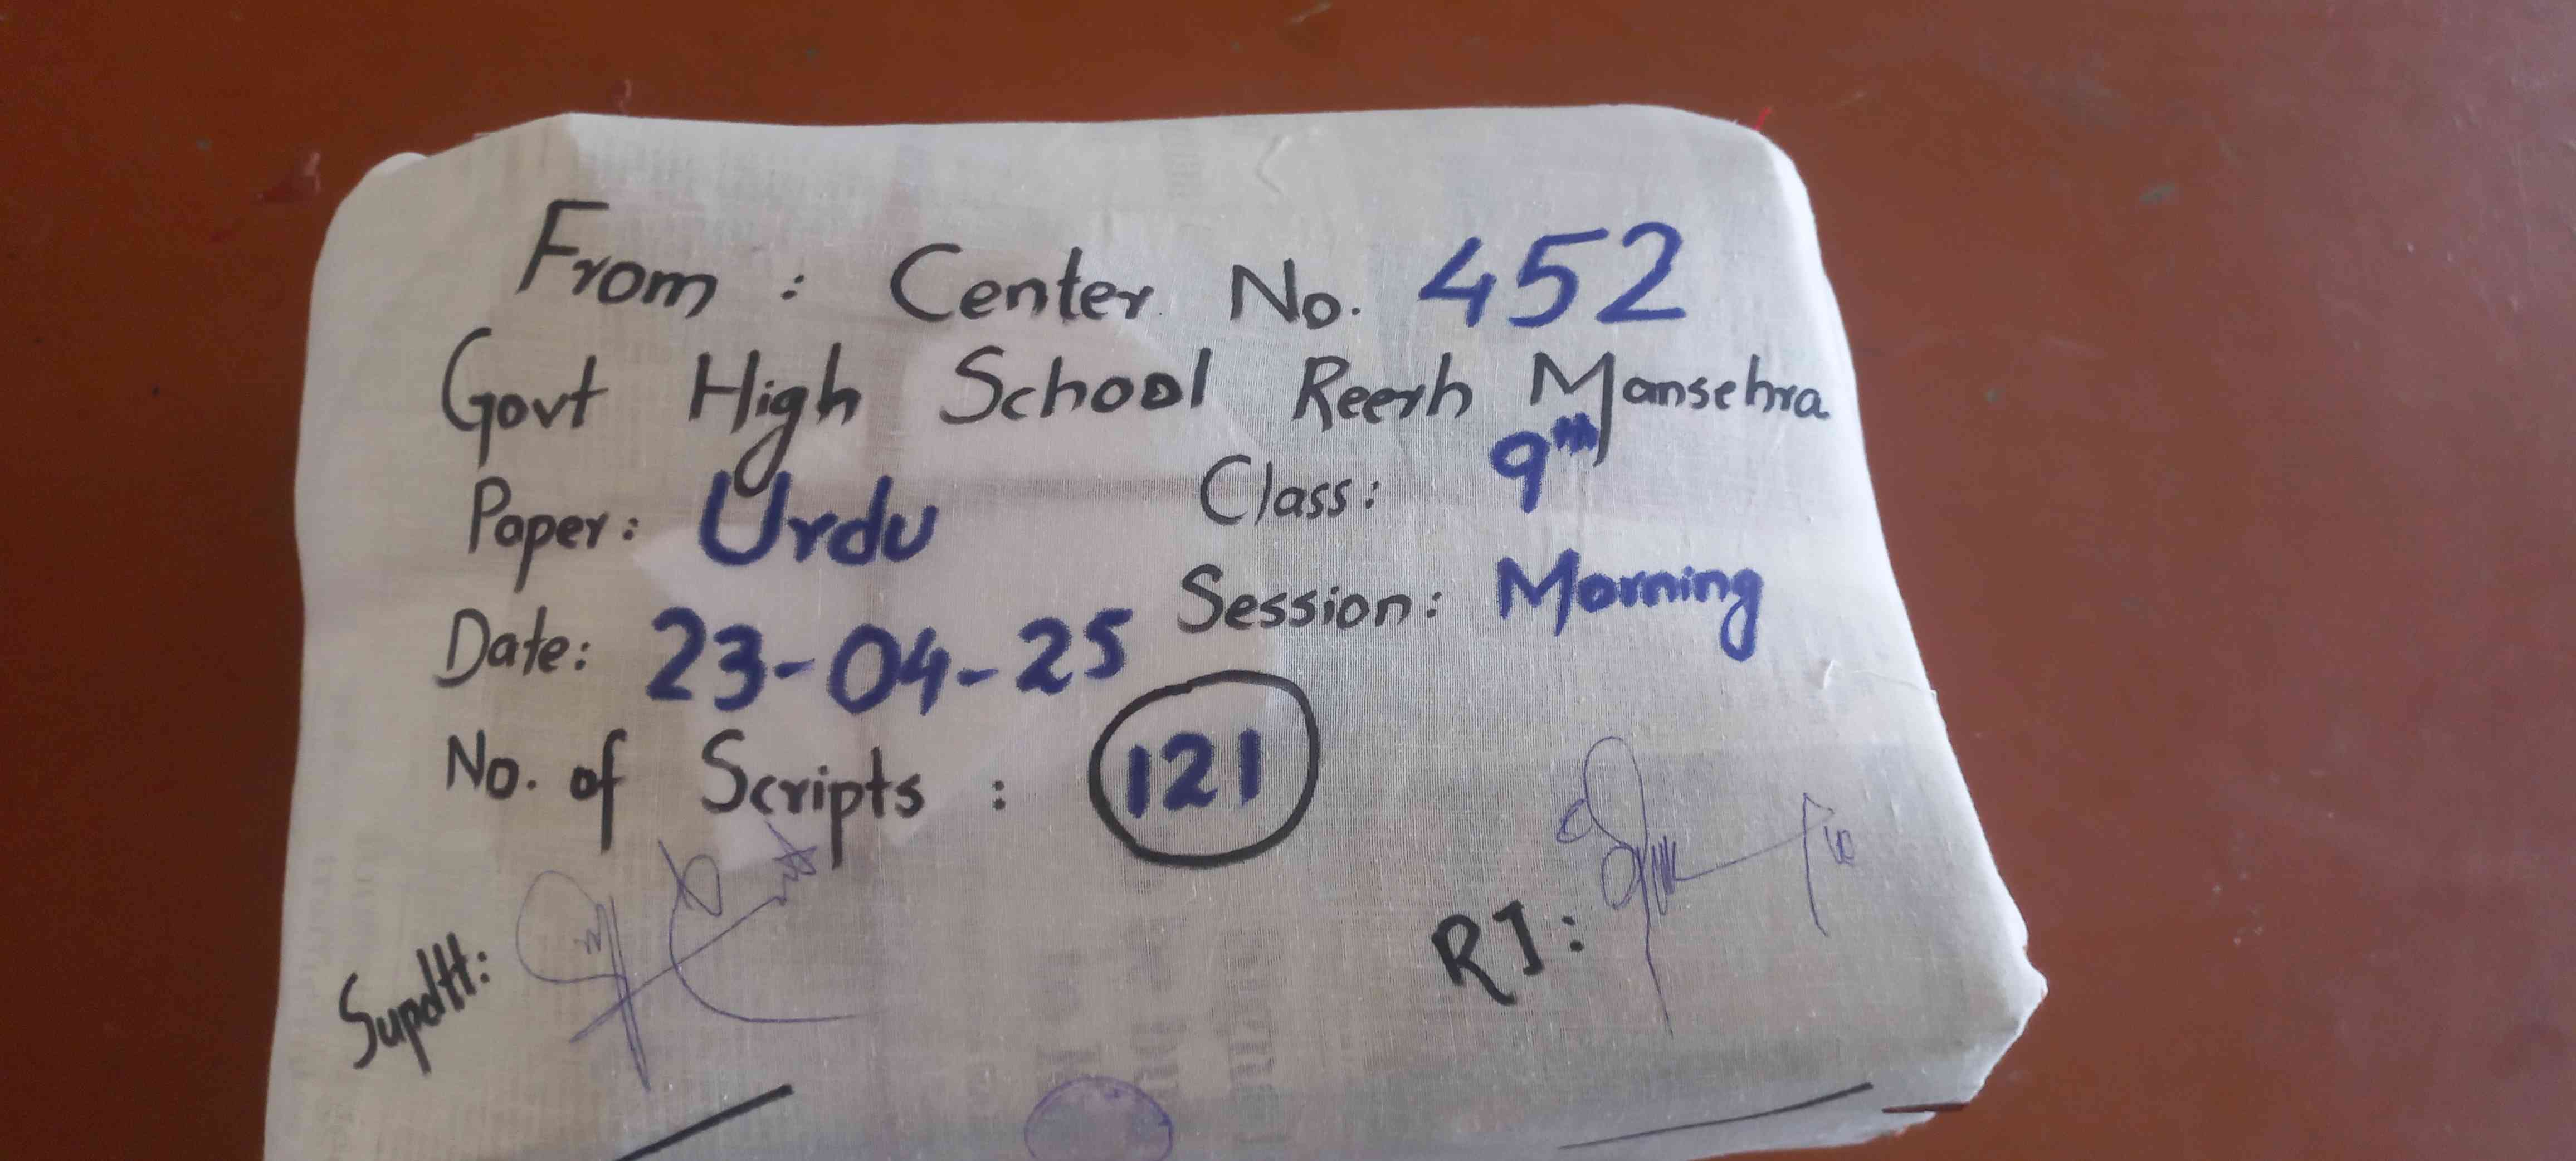 From : Center No. 452
Govt High School Reerh Mansehra
Paper: Urdu Class: 9th
Date: 23-04-25 Session: Morning
No. of Scripts : 121
Supdtt: RI: